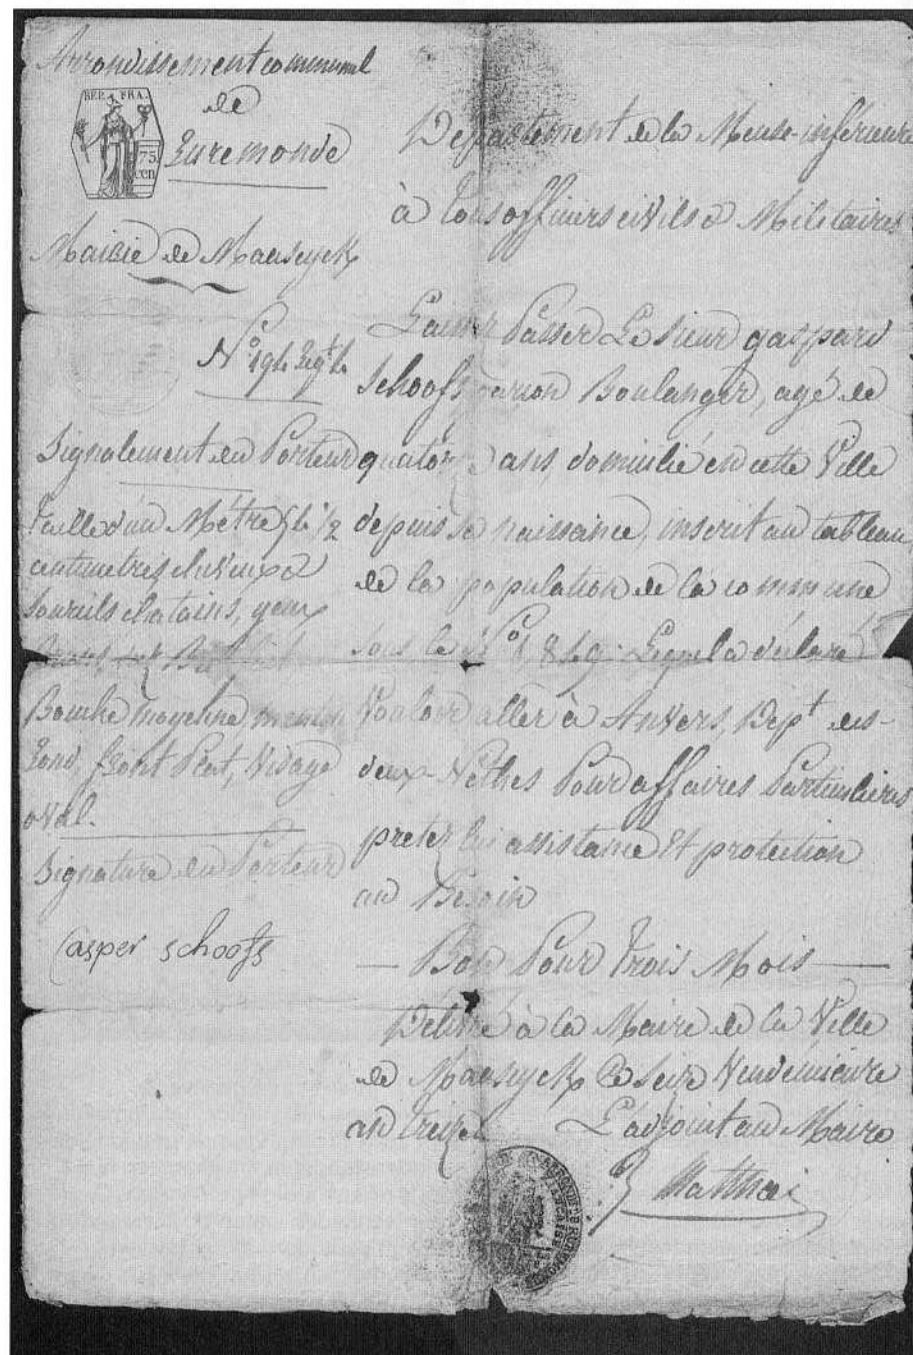 Arrondissement communal
de
Ruremonde
REP. FRA.
75
cen
Mairie de Maaseyck
Signalement du Porteur
Taille d'un Métre 54 1/2
centimetres cheveux &
Sourcils chatains, yeux
Bouche moyenne, menton
rond, front Plat, Visage
oval.
Signature du Porteur
Casper schoofs
Département de la Meuse-inférieure
à tous officiers civils & Militaires
Laissez Passer Le Sieur gaspard
Schoofs garçon Boulanger, agé de
quatorze ans, domicilié en cette Ville
depuis sa naissance, inscrit au tableau
de la population de la commune
sous le N.º 1,849. Lequel a déclaré
Vouloir aller à Anvers, Dept des
deux Nethes Pour affaires Particuliers
preter lui assistance Et protection
au Besoin
— Bon Pour trois Mois —
Délivré à la Maire de la Ville
de Maaseyck le seize Vendemieire
an treize
L'adjoint au Maire